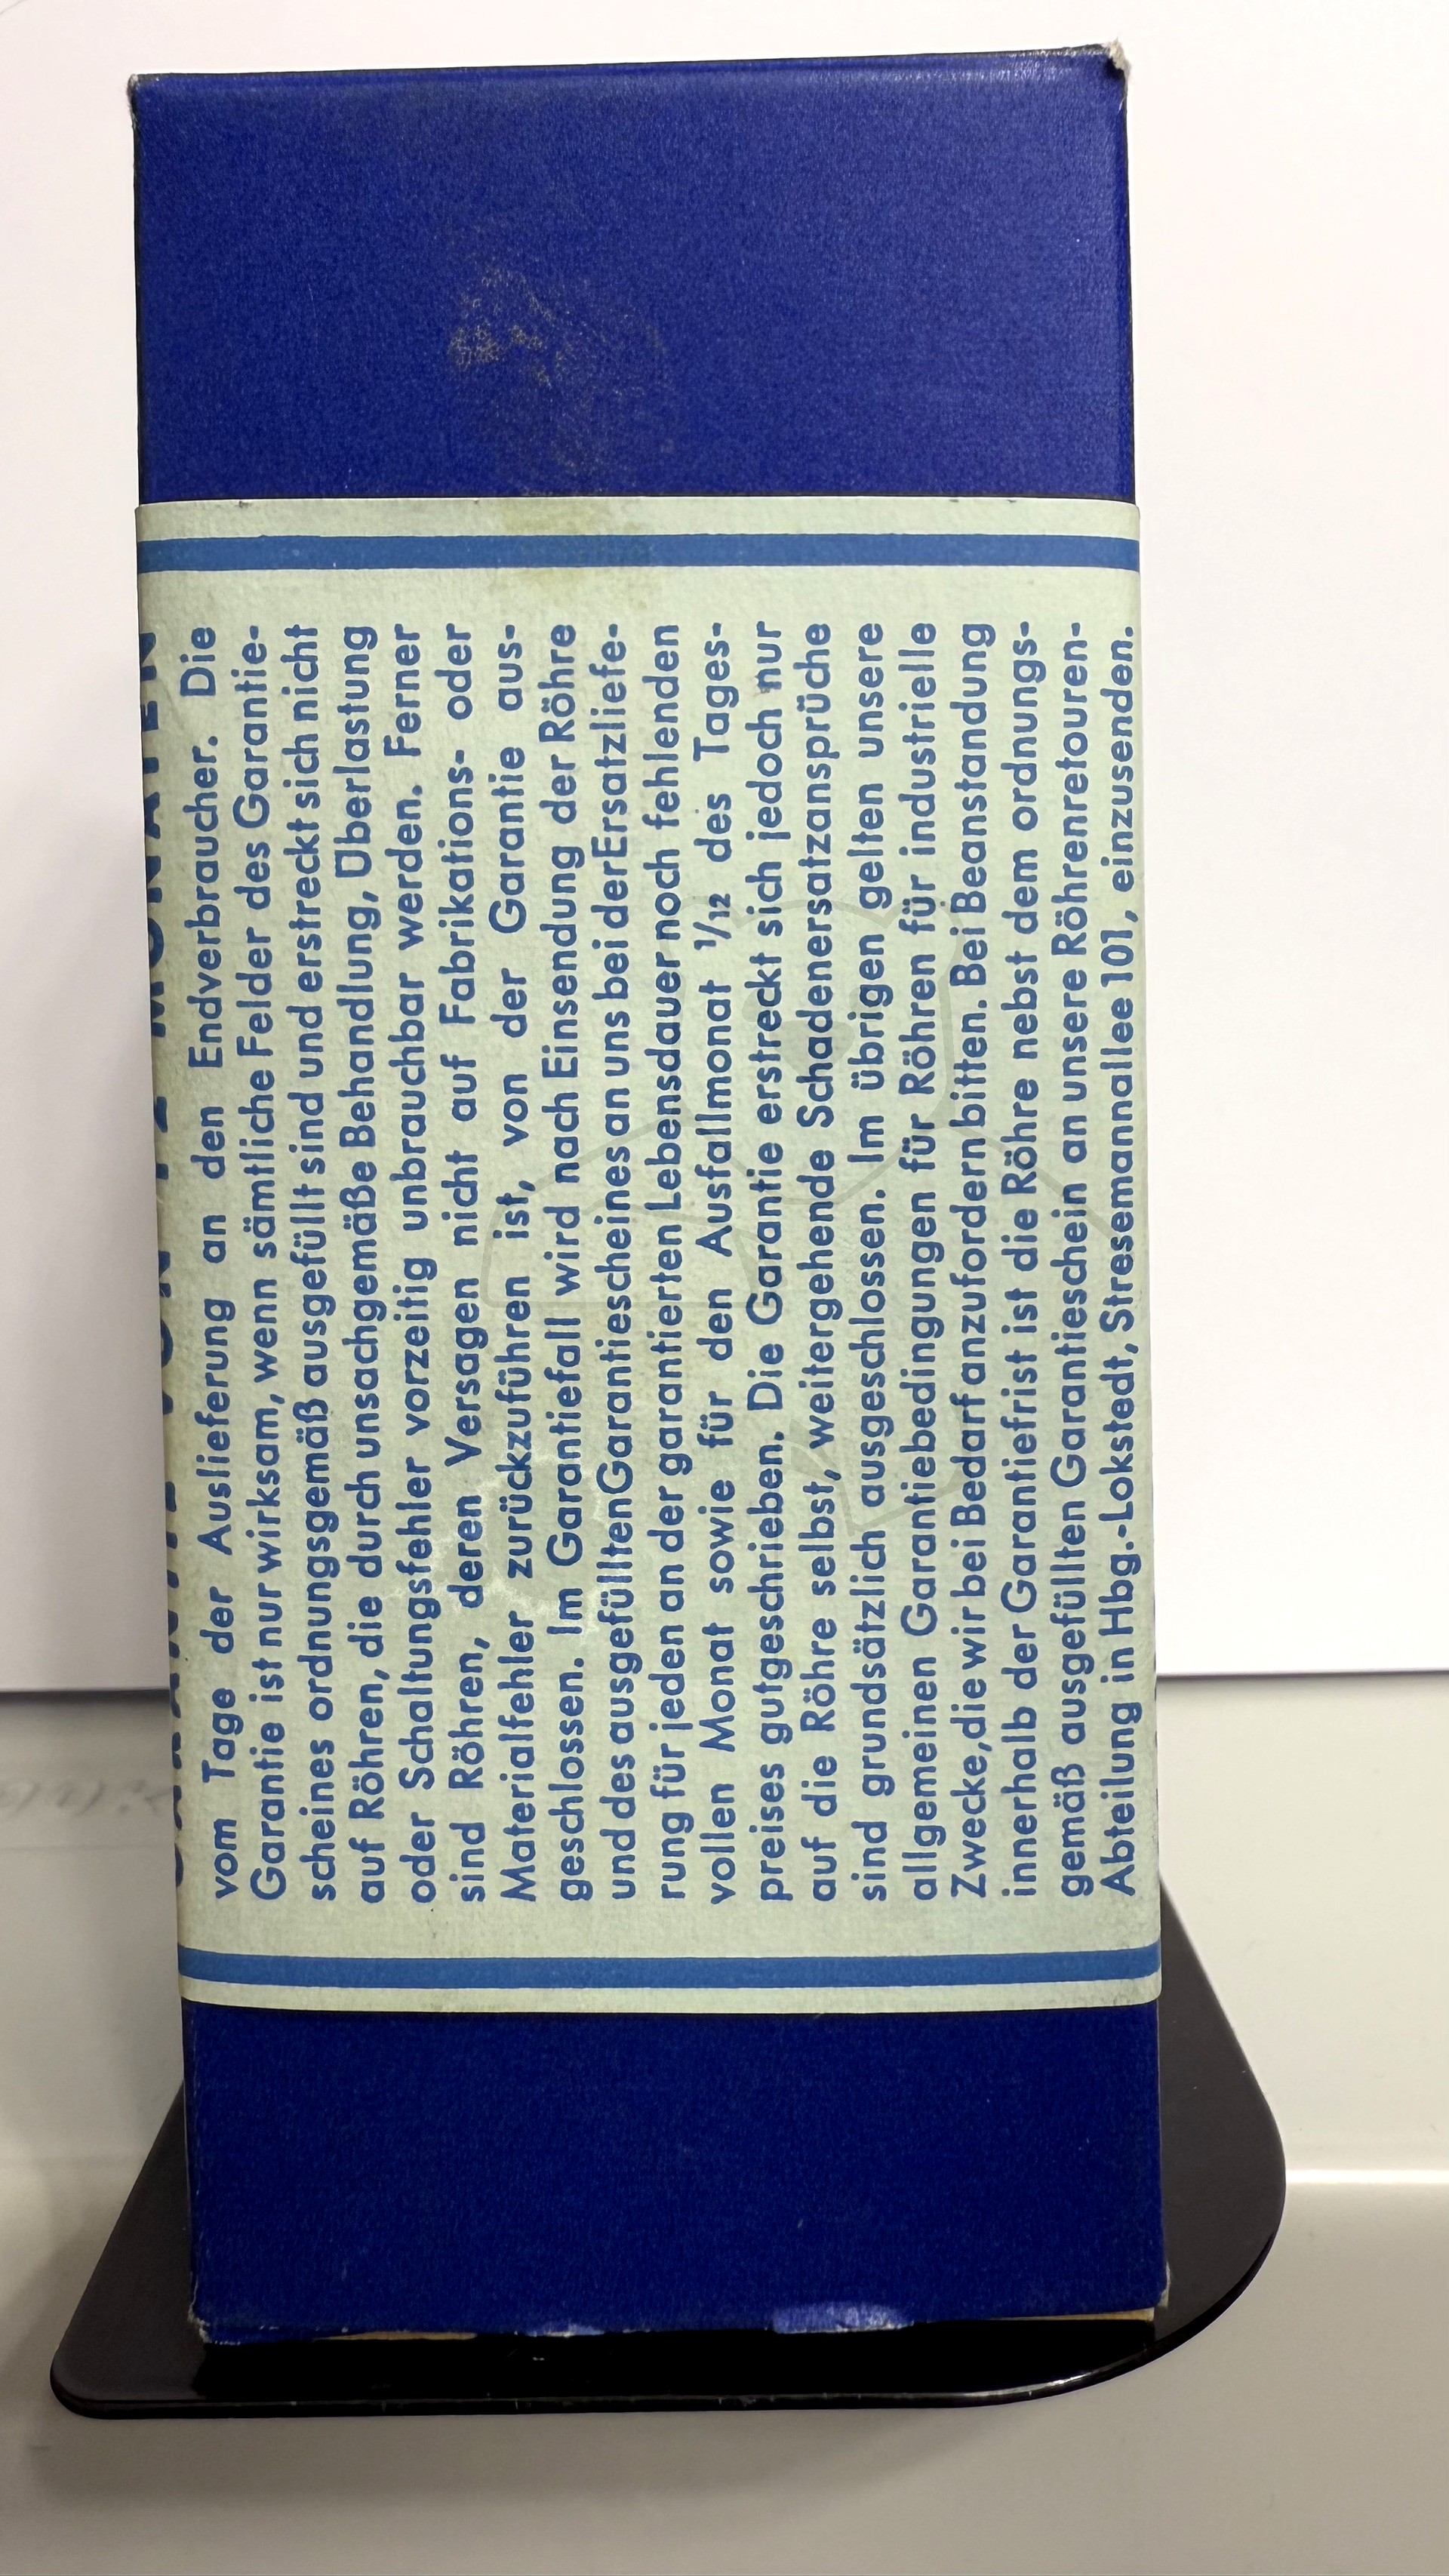 vom Tage der Auslieferung an den Endverbraucher. Die
Garantie ist nur wirksam, wenn sämtliche Felder des Garantie-
scheines ordnungsgemäß ausgefüllt sind und erstreckt sich nicht
auf Röhren, die durch unsachgemäße Behandlung, Überlastung
oder Schaltungsfehler vorzeitig unbrauchbar werden. Ferner
sind Röhren, deren Versagen nicht auf Fabrikations- oder
Materialfehler zurückzuführen ist, von der Garantie aus-
geschlossen. Im Garantiefall wird nach Einsendung der Röhre
und des ausgefüllten Garantiescheines an uns bei der Ersatzliefe-
rung für jeden an der garantierten Lebensdauer noch fehlenden
vollen Monat sowie für den Ausfallmonat 1/12 des Tages-
preises gutgeschrieben. Die Garantie erstreckt sich jedoch nur
auf die Röhre selbst, weitergehende Schadenersatzansprüche
sind grundsätzlich ausgeschlossen. Im übrigen gelten unsere
allgemeinen Garantiebedingungen für Röhren für industrielle
Zwecke, die wir bei Bedarf anzufordern bitten. Bei Beanstandung
innerhalb der Garantiefrist ist die Röhre nebst dem ordnungs-
gemäß ausgefüllten Garantieschein an unsere Röhrenretouren-
Abteilung in Hbg.-Lokstedt, Stresemannallee 101, einzusenden.